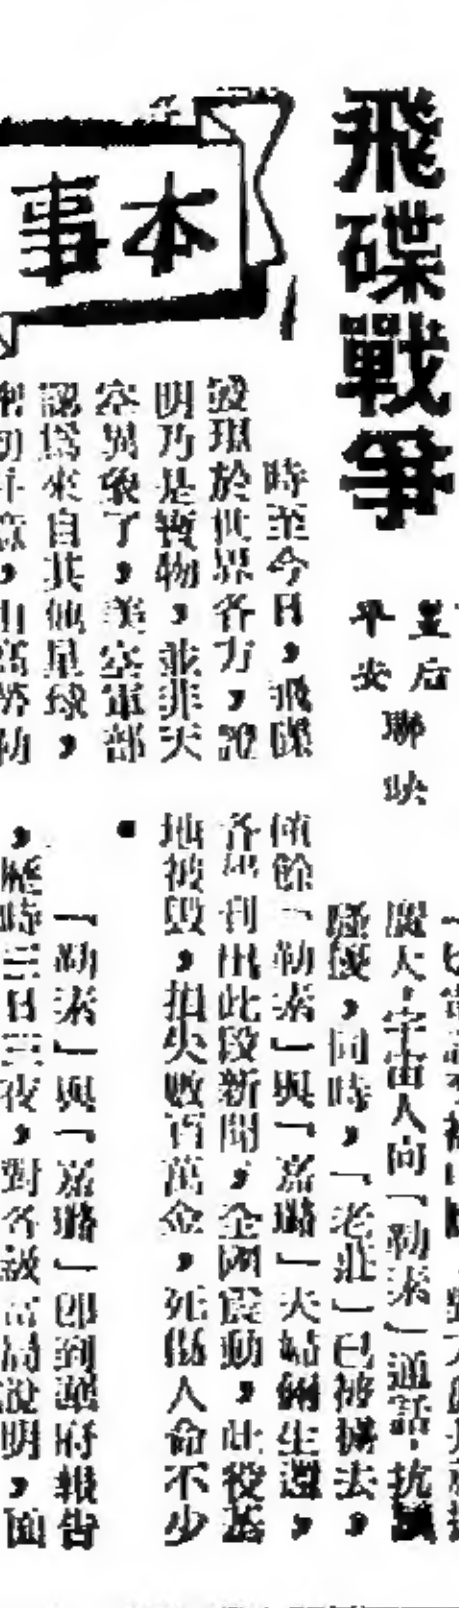 飛碟戰爭
皇后
平安
聯映
本事
時至今日，飛碟
發現於世界各方，證
明乃是實物，並非天
空異象了，美空軍部
認為來自其他星球，
廣大，宇宙人向「勒素」通話，抗議
騷擾，同時，「老莊」已被擄去，
「勒素」與「嘉璐」夫婦倆生還，
各報刊出此段新聞，全國震動，此役基
地被毀，損失數百萬金，死傷人命不少
「勒素」與「嘉璐」即到華府報告
，歷時三日三夜，對各級當局說明，面